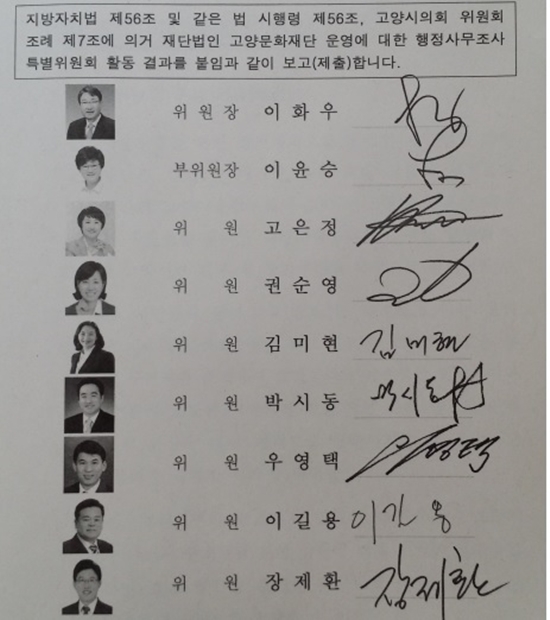 지방자치법 제56조 및 같은 법 시행령 제56조, 고양시의회 위원회
조례 제7조에 의거 재단법인 고양문화재단 운영에 대한 행정사무조사
특별위원회 활동 결과를 붙임과 같이 보고(제출)합니다.
위원장 이화우
부위원장 이윤승
위 원 고은정
위 원 권순영
위 원 김미현 김미현
위 원 박시동 박시동
위 원 우영택 우영택
위 원 이길용 이길용
위 원 장제환 장제환